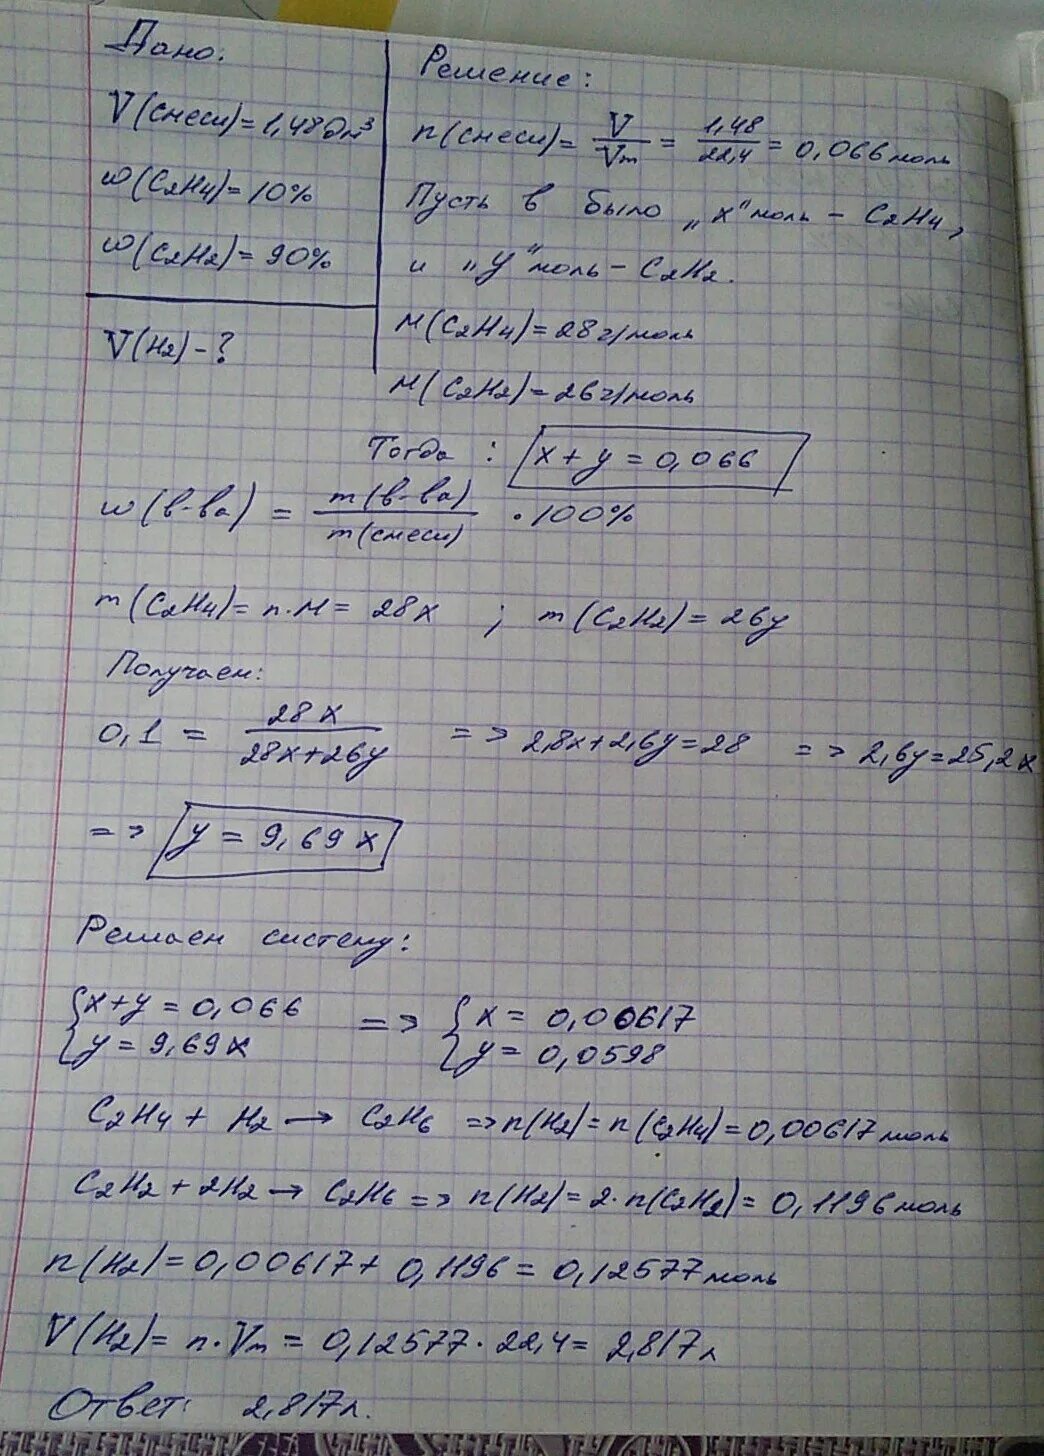 Дано:
V(смеси)=1,48дм³
w(C₂H₄)=10%
w(C₂H₂)=90%
V(H₂)-?
Решение:
n(смеси)= V/Vm = 1,48/22,4 = 0,066моль
Пусть в было „x" моль - C₂H₄,
и „y" моль - C₂H₂.
M(C₂H₄)=28г/моль
M(C₂H₂)=26г/моль
Тогда : x+y=0,066
w(в-ва) = m(в-ва)/m(смеси) · 100%
m(C₂H₄)=n·M= 28x ; m(C₂H₂)=26y
Получаем:
0,1 = 28x/28x+26y => 2,8x+2,6y=28 => 2,6y=25,2x
=> y = 9,69x
Решаем систему:
{x+y=0,066 => {x= 0,00617
{y=9,69x {y= 0,0598
C₂H₄ + H₂ → C₂H₆ =>n(H₂)=n(C₂H₄)=0,00617моль
C₂H₂+2H₂→ C₂H₆ => n(H₂)=2·n(C₂H₂)=0,1196моль
n(H₂)=0,00617+ 0,1196=0,12577моль
V(H₂)= n·Vm = 0,12577·22,4= 2,817л
Ответ: 2,817л.